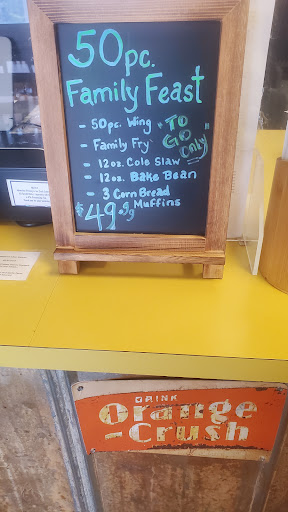 50pc.
Family Feast
- 50pc. Wing
- Family Fry
- 12oz. Cole Slaw
- 12oz. Bake Bean
- 3 Corn Bread
Muffins
"TO
GO
Only"
$49.99
DRINK
Orange
-Crush